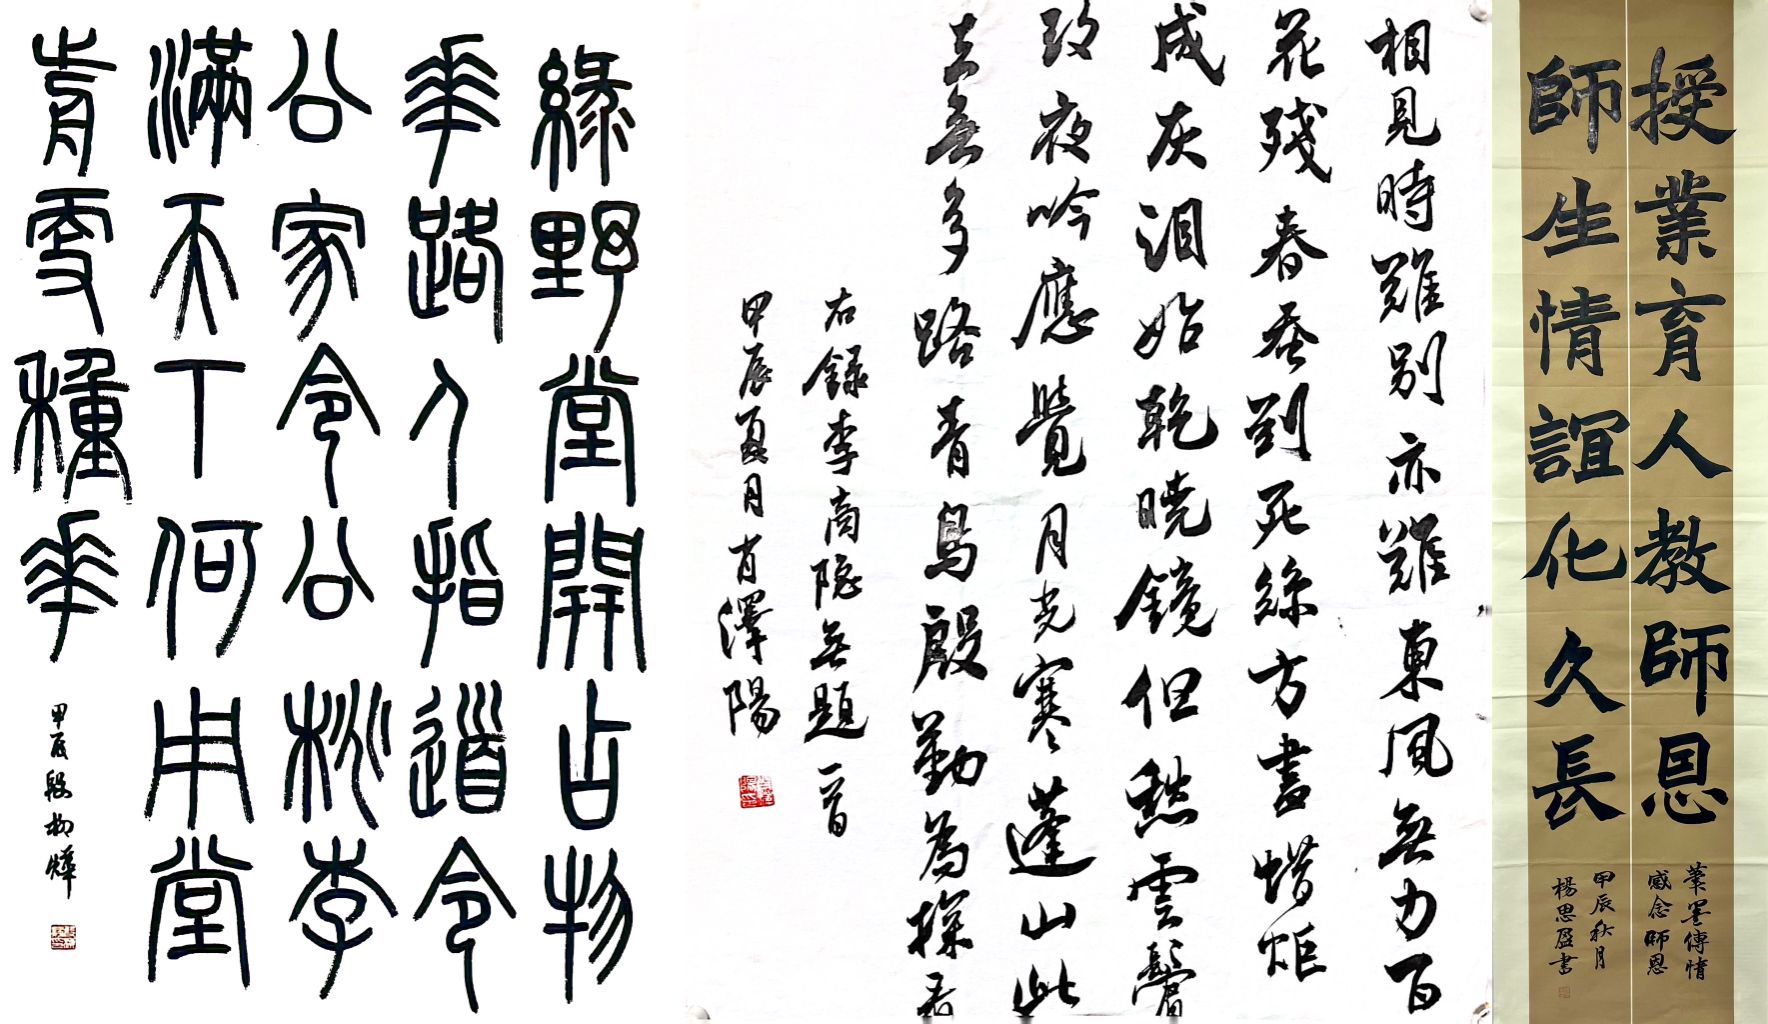 綠野堂開占物
華路人指道令
公家令公桃李
滿天下何用堂
前更種華
甲辰段柳燁
相見時難別亦難東風無力百
花殘春蚕到死絲方盡蜡炬
成灰泪始乾曉鏡但愁雲鬢
改夜吟應覺月光寒蓬山此
去無多路青鳥殷勤為探看
右錄李商隱無題一首
甲辰夏月肖澤陽
授業育人教師恩
筆墨傳情
感念師恩
師生情誼化久長
甲辰秋月
楊思盈書